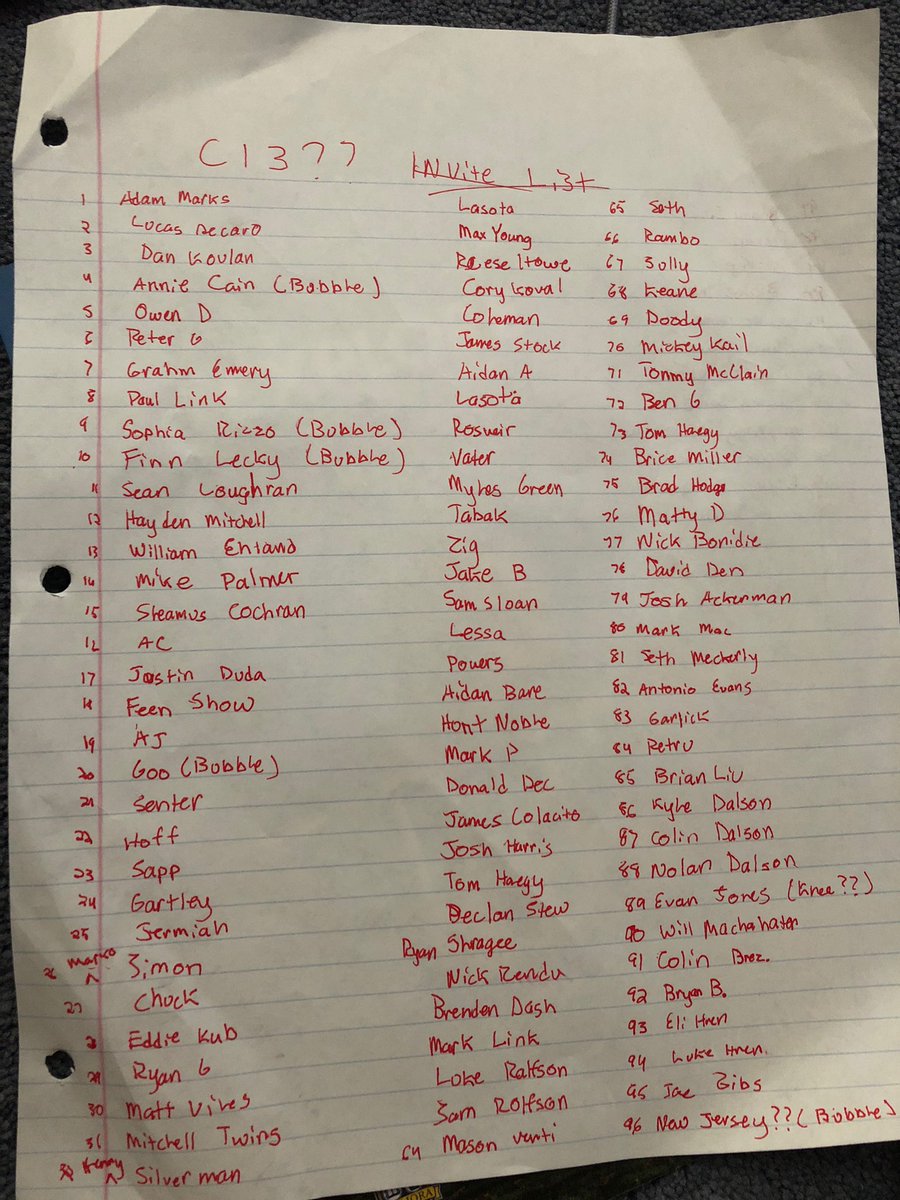 C13??
INVite List
1 Adam Marks
2 Lucas Decaro
3 Dan Koulan
4 Annie Cain (Bubble)
5 Owen D
6 Peter G
7 Grahm Emery
8 Paul Link
9 Sophia Rizzo (Bubble)
10 Finn Lecky (Bubble)
11 Sean Loughran
12 Hayden Mitchell
13 William
14 Mike Palmer
15 Sheamus Cochran
AC
17 Justin Duda
18 Feen Show
19 AJ
20 Goo (Bubble)
21 Senter
22 Hoff
23 Sapp
24 Gartley
25 Jermiah
26 Marko Simon
27 Chuck
28 Eddie Kub
29 Ryan G
30 Matt Vires
31 Mitchell Twins
Silverman
Lasota
Max Young
Reese
Cory Koval
Coheman
James Stock
Aidan A
Lasota
Vater
Myles Green
Tabak
Zig
Jake B
Sam Sloan
Lessa
Powers
Aidan Bare
Hont Noble
Mark P
Donald Dec
James Colacito
Josh Harris
Tom Haegy
Declan Stew
Ryan Shragee
Nick Rendu
Brenden Dash
Mark Link
Luke Rolfson
Sam Rolfson
64 Mason Venti
65 Seth
66 Rambo
67 Sully
68 Keane
69 Doody
70 Mickey Kail
71 Tommy McClain
72 Ben G
73 Tom Haegy
74 Brice Miller
75 Brad Hodge
76 Matty D
77 Nick Bonidie
78 David Den
79 Josh Ackerman
80 Mark Mac
81 Seth Meckerly
82 Antonio Evans
83 Garlick
84 Petru
85 Brian Liu
86 Kyle Dalson
87 Colin Dalson
88 Nolan Dalson
89 Evan Jones (Knee??)
90 Will
91 Colin Brez.
92 Bryan B.
93 Eli Hren
94 Luke Hren.
95 Joe Gibs
96 New Jersey?? (Bubble)